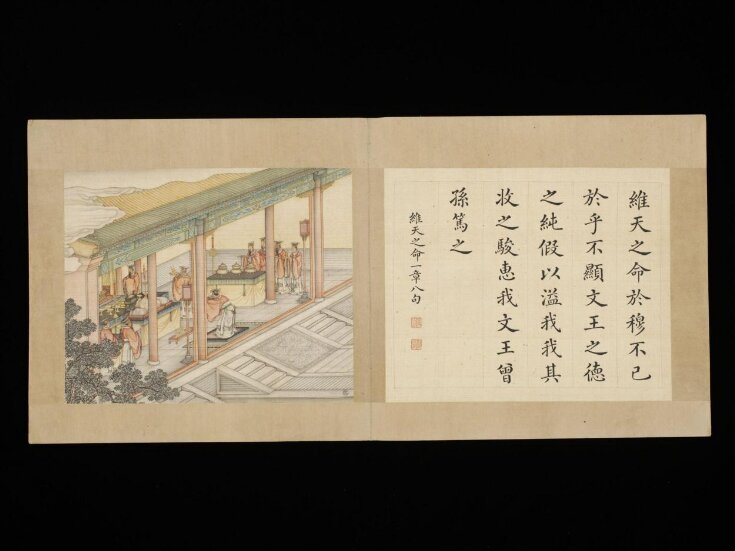 維天之命於穆不已
於乎不顯文王之德
之純假以溢我我其
收之駿惠我文王曾
孫篤之
維天之命一章八句